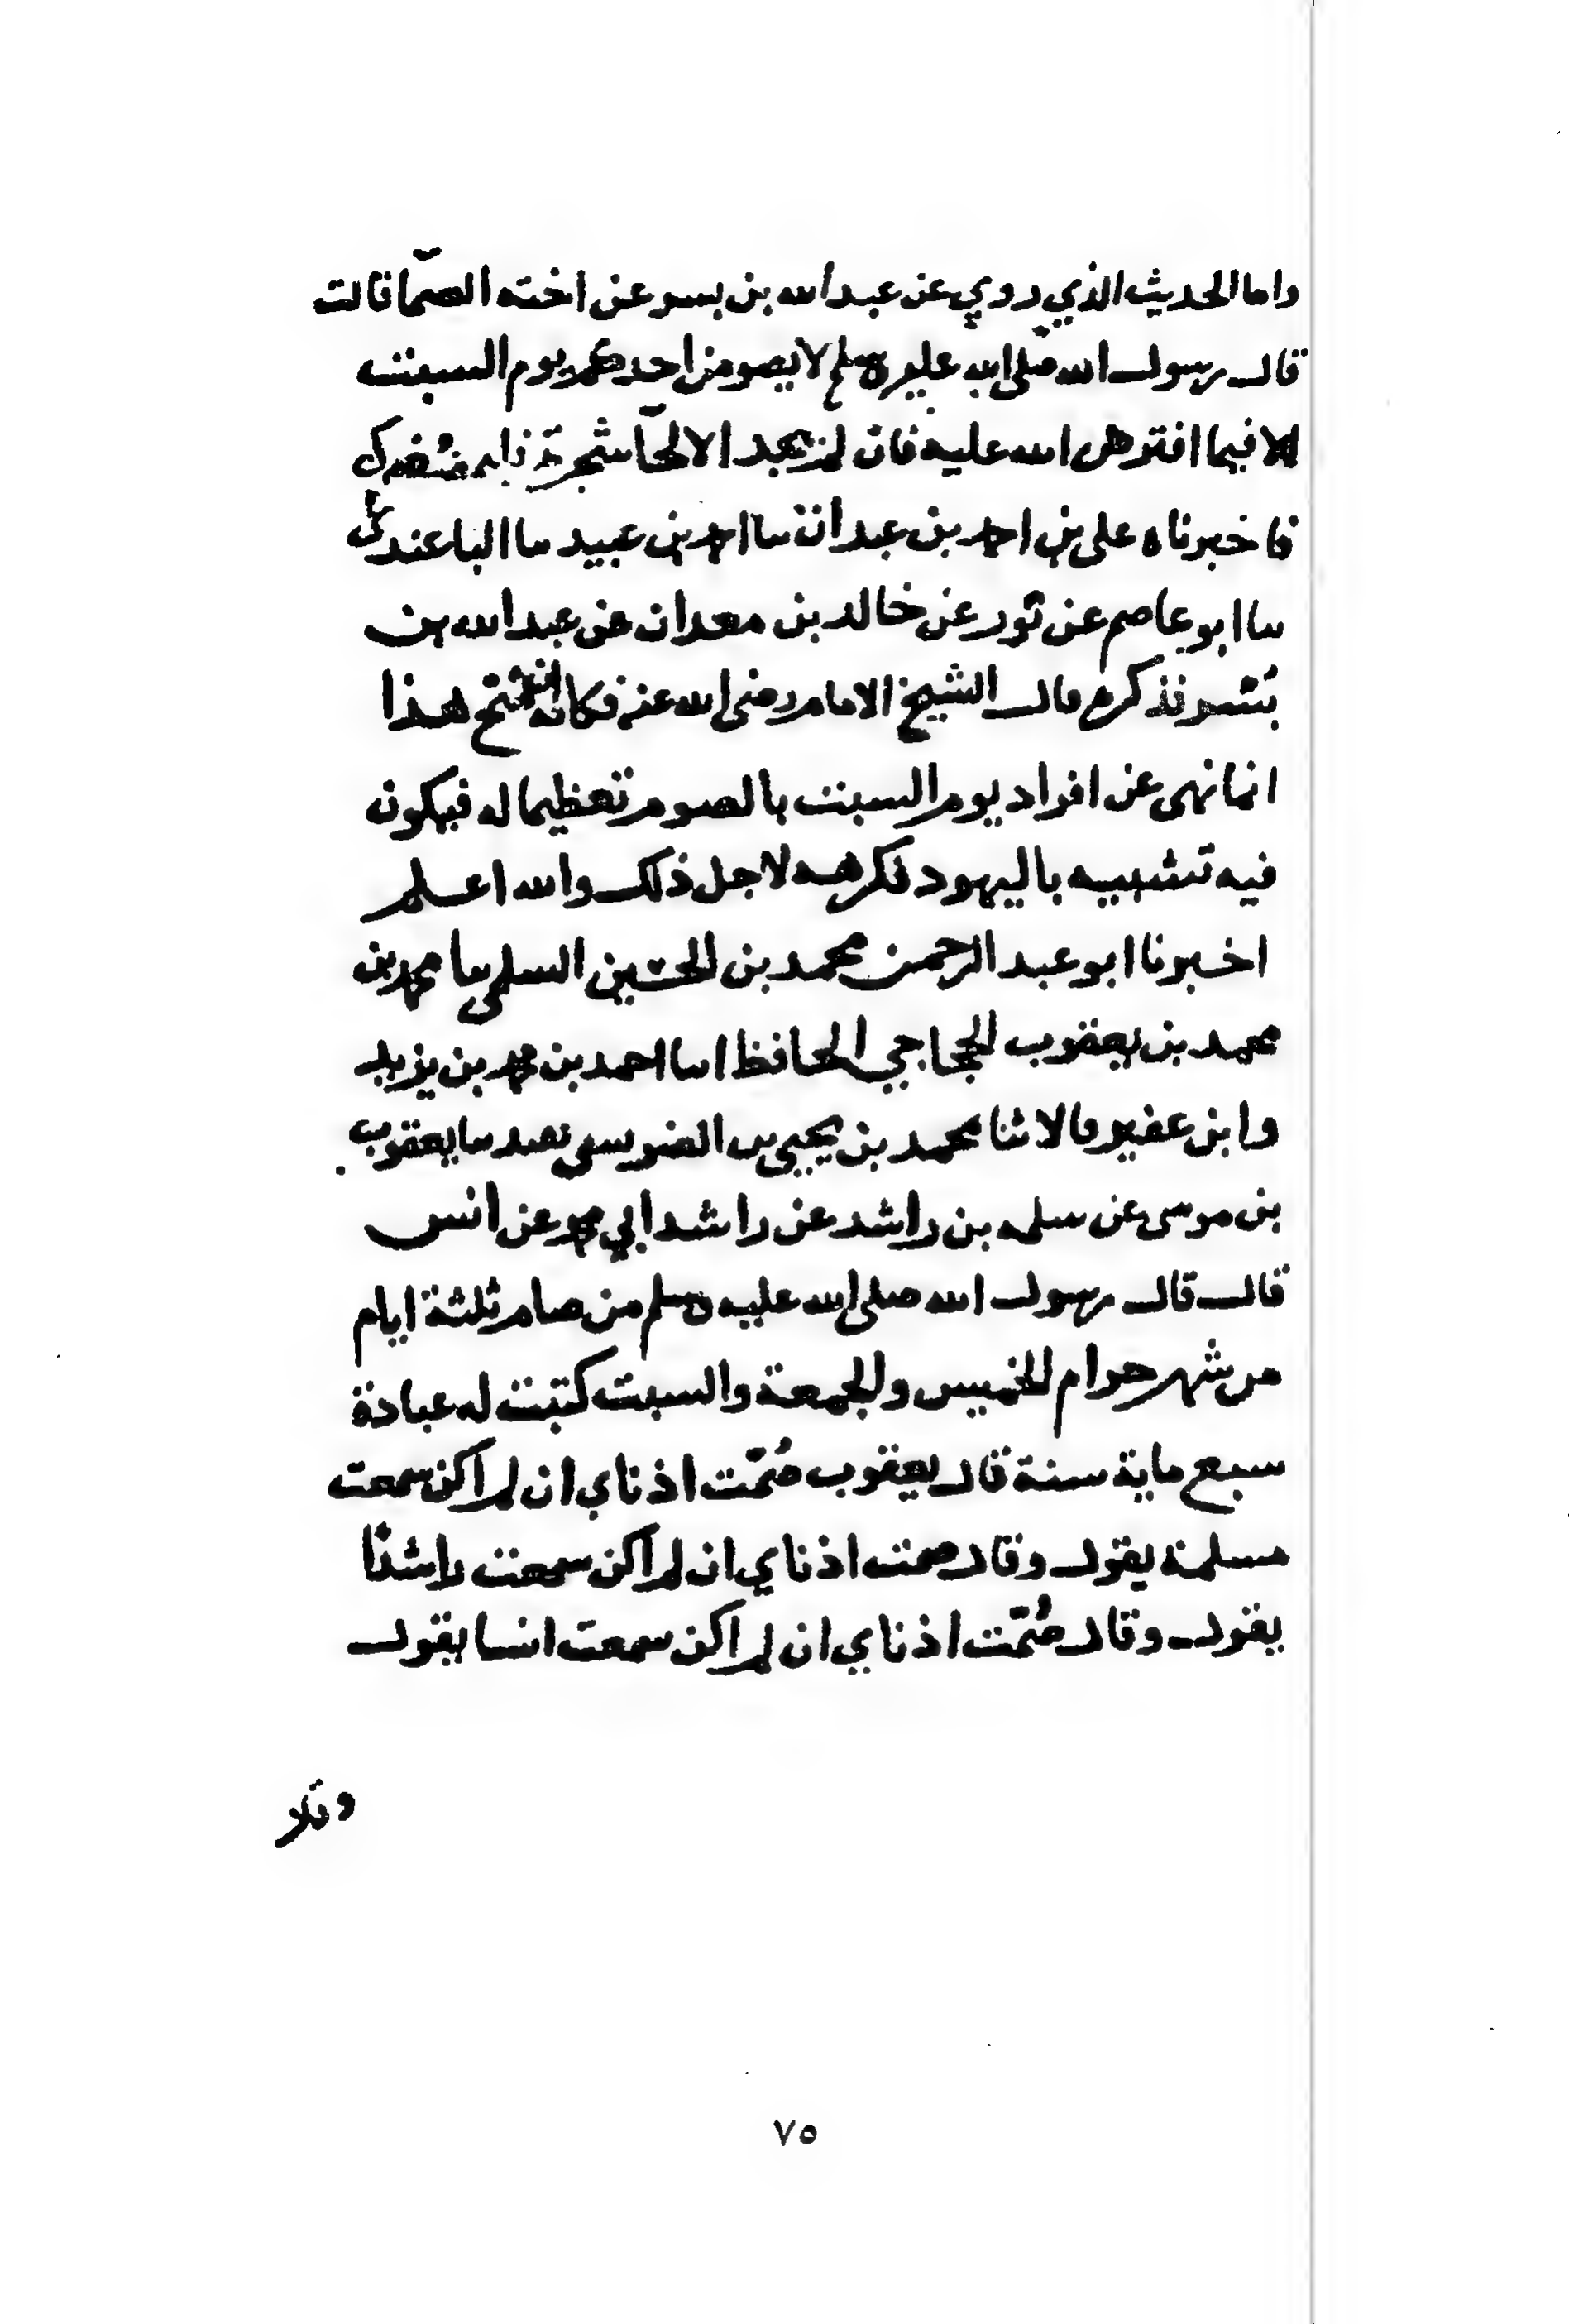 واما الحديث الذي روي عن عبدالله بن بسر عن اخته الصمّا قالت
قال رسول الله صلى الله عليه وسلم لا يصومن احدكم يوم السبت
الا فيما افترض الله عليه فان لم يجد الا لحا شجرة
فاخبرناه علي بن احمد بن عبدان سا احمد بن عبيد سا الباغندي
سا ابو عاصم عن ثور عن خالد بن معدان عن عبدالله بن
بُسر فذكره قال الشيخ الامام رضي الله عنه فكانه ان صح هذا
انما نهى عن افراد يوم السبت بالصوم تعظيما له فيكون
فيه تشبيه باليهود فكرهه لاجل ذلك والله اعلم
اخبرنا ابو عبد الرحمن محمد بن الحسين السلمي سا محمد بن
محمد بن يعقوب الحجاجي الحافظ اسا احمد بن محمد بن يزيد
وابن عفير قالا ثنا محمد بن يحيى بن الضريس بفيد سا يعقوب
بن موسى عن سلمه بن راشد عن راشد ابي محمد عن انس
قال قال رسول الله صلى الله عليه وسلم من صام ثلثة ايام
من شهر حرام الخميس والجمعة والسبت كتبت له عبادة
سبع ماية سنة قال يعقوب صُمّت اذناي ان لم اكن سمعت
مسلمة يقول وقال صمت اذناي ان لم اكن سمعت راشدًا
يقول وقال صُمّت اذناي ان لم اكن سمعت انسا يقول
وقال
٧٥